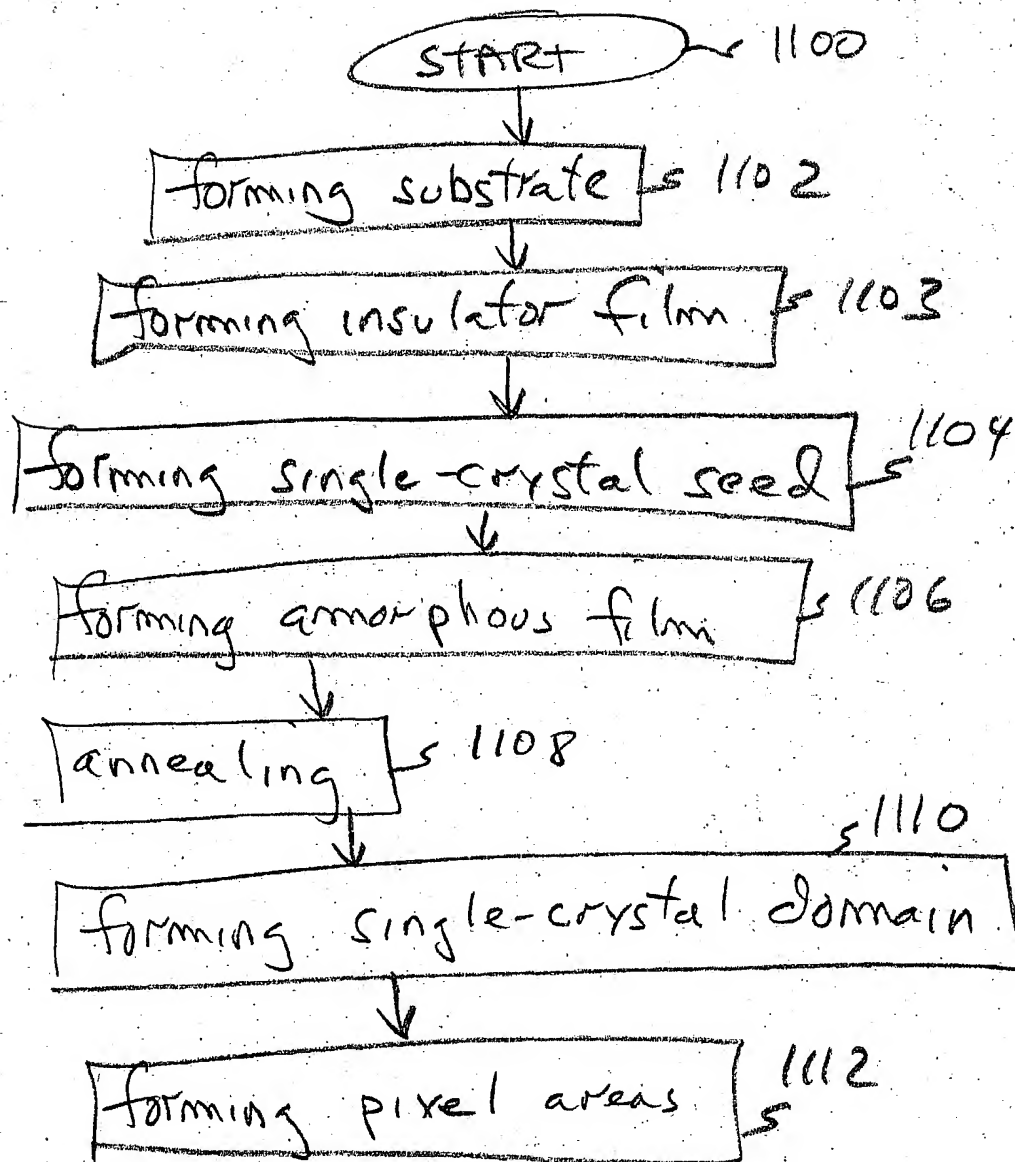 START 1100
forming substrate 1102
forming insulator film 1103
forming single-crystal seed 1104
forming amorphous film 1106
annealing 1108
1110
forming single-crystal domain
forming pixel areas 1112